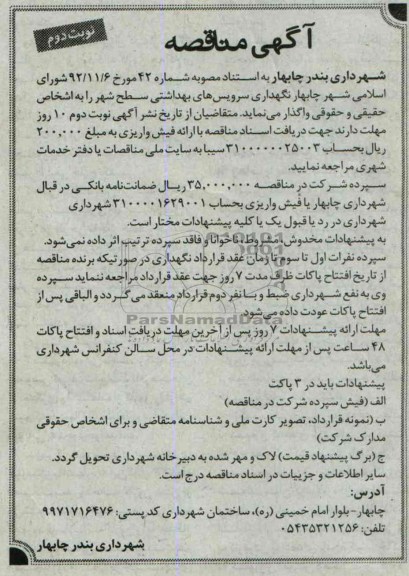 نوبت دوم
آگهی مناقصه
شهرداری بندر چابهار به استناد مصوبه شماره ۴۲ مورخ ۹۲/۱۱/۶ شورای
اسلامی شهر چابهار نگهداری سرویس‌های بهداشتی سطح شهر را به اشخاص
حقیقی و حقوقی واگذار می‌نماید. متقاضیان از تاریخ نشر آگهی نوبت دوم ۱۰ روز
مهلت دارند جهت دریافت اسناد مناقصه با ارائه فیش واریزی به مبلغ ۲۰۰,۰۰۰
ریال بحساب ۳۱۰۰۰۰۰۰۲۵۰۰۳ سیبا به سایت ملی مناقصات یا دفتر خدمات
شهری مراجعه نمایید.
سپرده شرکت در مناقصه ۳۵,۰۰۰,۰۰۰ ریال ضمانت‌نامه بانکی در قبال
شهرداری چابهار یا فیش واریزی بحساب ۳۱۰۰۰۰۱۶۲۹۰۰۱ شهرداری
شهرداری در رد یا قبول یک یا کلیه پیشنهادات مختار است.
به پیشنهادات مخدوش، مشروط، ناخوانا و فاقد سپرده ترتیب اثر داده نمی‌شود.
سپرده نفرات اول تا سوم تا زمان عقد قرارداد نگهداری در صورتیکه برنده مناقصه
از تاریخ افتتاح پاکات ظرف مدت ۷ روز جهت عقد قرارداد مراجعه ننماید سپرده
وی به نفع شهرداری ضبط و با نفر دوم قرارداد منعقد می‌گردد و الباقی پس از
افتتاح پاکات عودت داده می‌شود.
مهلت ارائه پیشنهادات ۷ روز پس از آخرین مهلت دریافت اسناد و افتتاح پاکات
۴۸ ساعت پس از مهلت ارائه پیشنهادات در محل سالن کنفرانس شهرداری
می‌باشد.
پیشنهادات باید در ۳ پاکت
الف (فیش سپرده شرکت در مناقصه)
ب (نمونه قرارداد، تصویر کارت ملی و شناسنامه متقاضی و برای اشخاص حقوقی
مدارک شرکت)
ج (برگ پیشنهاد قیمت) لاک و مهر شده به دبیرخانه شهرداری تحویل گردد.
سایر اطلاعات و جزییات در اسناد مناقصه درج است.
آدرس:
چابهار- بلوار امام خمینی (ره)، ساختمان شهرداری کد پستی: ۹۹۷۱۷۱۶۴۷۶
تلفن: ۰۵۴۳۵۳۲۱۲۵۶
شهرداری بندر چابهار
ParsNamadData